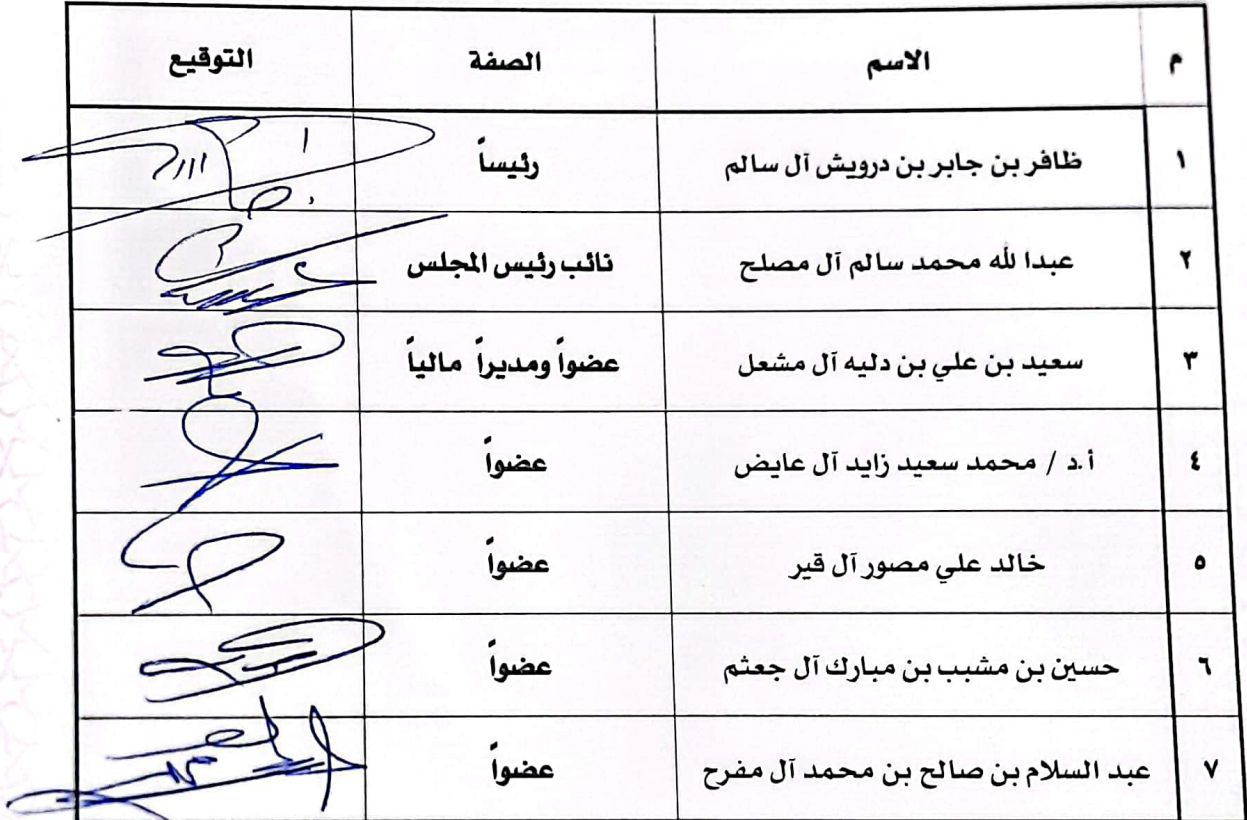 م الاسم الصفة التوقيع
١ ظافر بن جابر بن درويش آل سالم رئيساً
٢ عبدا لله محمد سالم آل مصلح نائب رئيس المجلس
٣ سعيد بن علي بن دليه آل مشعل عضواً ومديراً مالياً
٤ أ.د / محمد سعيد زايد آل عايض عضواً
٥ خالد علي مصور آل قير عضواً
٦ حسين بن مشبب بن مبارك آل جعثم عضواً
٧ عبد السلام بن صالح بن محمد آل مفرح عضواً